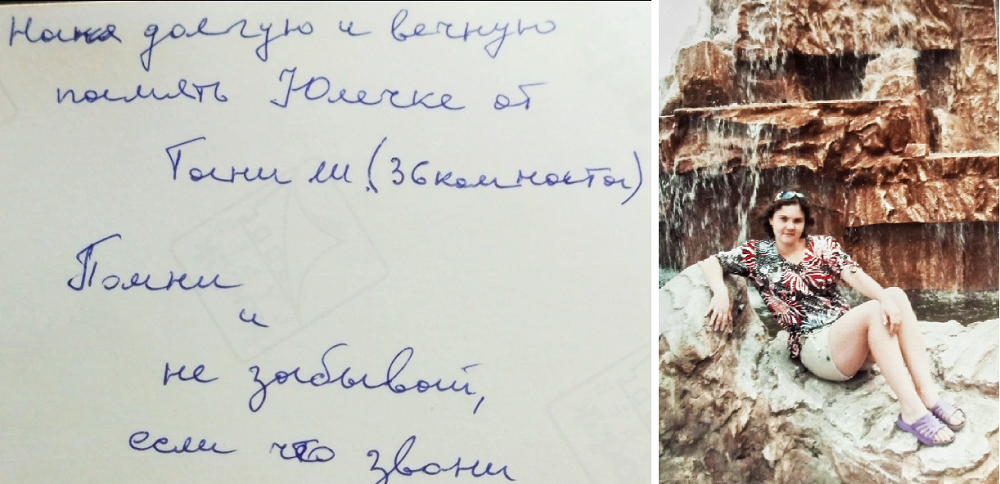 На долгую и вечную
память Юлечке от
Тани Ш. (36 комната)
Помни
и
не забывай,
если что звони